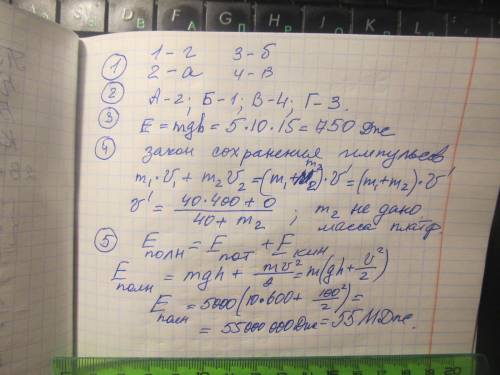 1 1-г 3-б
2-а 4-в
2 А-2; Б-1; В-4; Г-3.
3 E = mgh = 5·10·15 = 750 Дж
4 закон сохранения импульсов
m₁·V₁ + m₂V₂ = (m₁+m₂)·V' = (m₁+m₂)·V'
V' = (40·400 + 0)/(40 + m₂) ; m₂ не дано,
масса платф.
5 Eполн = Eпот + Eкин
Eполн = mgh + mv²/2 = m(gh + V²/2)
Eполн = 5000(10·600 + 100²/2) =
= 55000 000 Дж = 55 МДж.